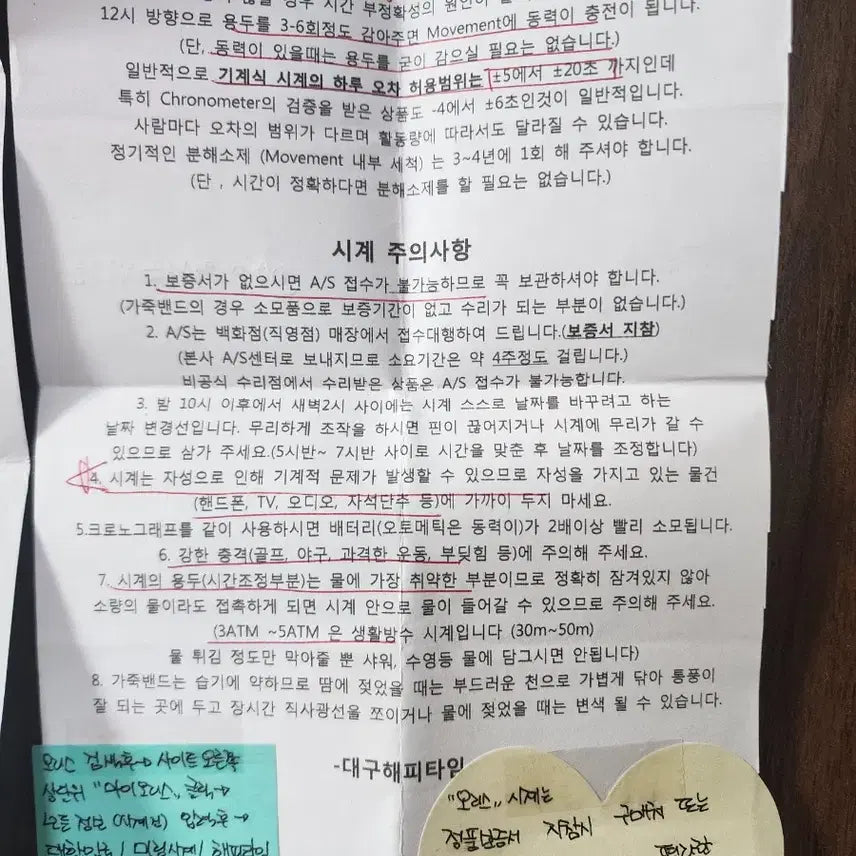 않을 경우 시간 부정확성의 원인이
12시 방향으로 용두를 3-6회정도 감아주면 Movement에 동력이 충전이 됩니다.
(단, 동력이 있을때는 용두를 굳이 감으실 필요는 없습니다.)
일반적으로 기계식 시계의 하루 오차 허용범위는 ±5에서 ±20초 까지인데
특히 Chronometer의 검증을 받은 상품도 -4에서 ±6초인것이 일반적입니다.
사람마다 오차의 범위가 다르며 활동량에 따라서도 달라질 수 있습니다.
정기적인 분해소제 (Movement 내부 세척) 는 3~4년에 1회 해 주셔야 합니다.
(단 , 시간이 정확하다면 분해소제를 할 필요는 없습니다.)
시계 주의사항
1. 보증서가 없으시면 A/S 접수가 불가능하므로 꼭 보관하셔야 합니다.
(가죽밴드의 경우 소모품으로 보증기간이 없고 수리가 되는 부분이 없습니다.)
2. A/S는 백화점(직영점) 매장에서 접수대행하여 드립니다.(보증서 지참)
(본사 A/S센터로 보내지므로 소요기간은 약 4주정도 걸립니다.)
비공식 수리점에서 수리받은 상품은 A/S 접수가 불가능합니다.
3. 밤 10시 이후에서 새벽2시 사이에는 시계 스스로 날짜를 바꾸려고 하는
날짜 변경선입니다. 무리하게 조작을 하시면 핀이 끊어지거나 시계에 무리가 갈 수
있으므로 삼가 주세요.(5시반~ 7시반 사이로 시간을 맞춘 후 날짜를 조정합니다)
4. 시계는 자성으로 인해 기계적 문제가 발생할 수 있으므로 자성을 가지고 있는 물건
(핸드폰, TV, 오디오, 자석단추 등)에 가까이 두지 마세요.
5.크로노그래프를 같이 사용하시면 배터리(오토메틱은 동력이)가 2배이상 빨리 소모됩니다.
6. 강한 충격(골프, 야구, 과격한 운동, 부딪힘 등)에 주의해 주세요.
7. 시계의 용두(시간조정부분)는 물에 가장 취약한 부분이므로 정확히 잠겨있지 않아
소량의 물이라도 접촉하게 되면 시계 안으로 물이 들어갈 수 있으므로 주의해 주세요.
(3ATM ~5ATM 은 생활방수 시계입니다 (30m~50m)
물 튀김 정도만 막아줄 뿐 샤워, 수영등 물에 담그시면 안됩니다)
8. 가죽밴드는 습기에 약하므로 땀에 젖었을 때는 부드러운 천으로 가볍게 닦아 통풍이
잘 되는 곳에 두고 장시간 직사광선을 쪼이거나 물에 젖었을 때는 변색 될 수 있습니다.
-대구해피타임
오리스 검색후→ 사이트 오른쪽
상단위 "마이오리스" 클릭→
모든 정보 (시계정) 입력후→
대한민국 / 해피타임
"오리스" 시계는
정품보증서 지참시 구매처 또는